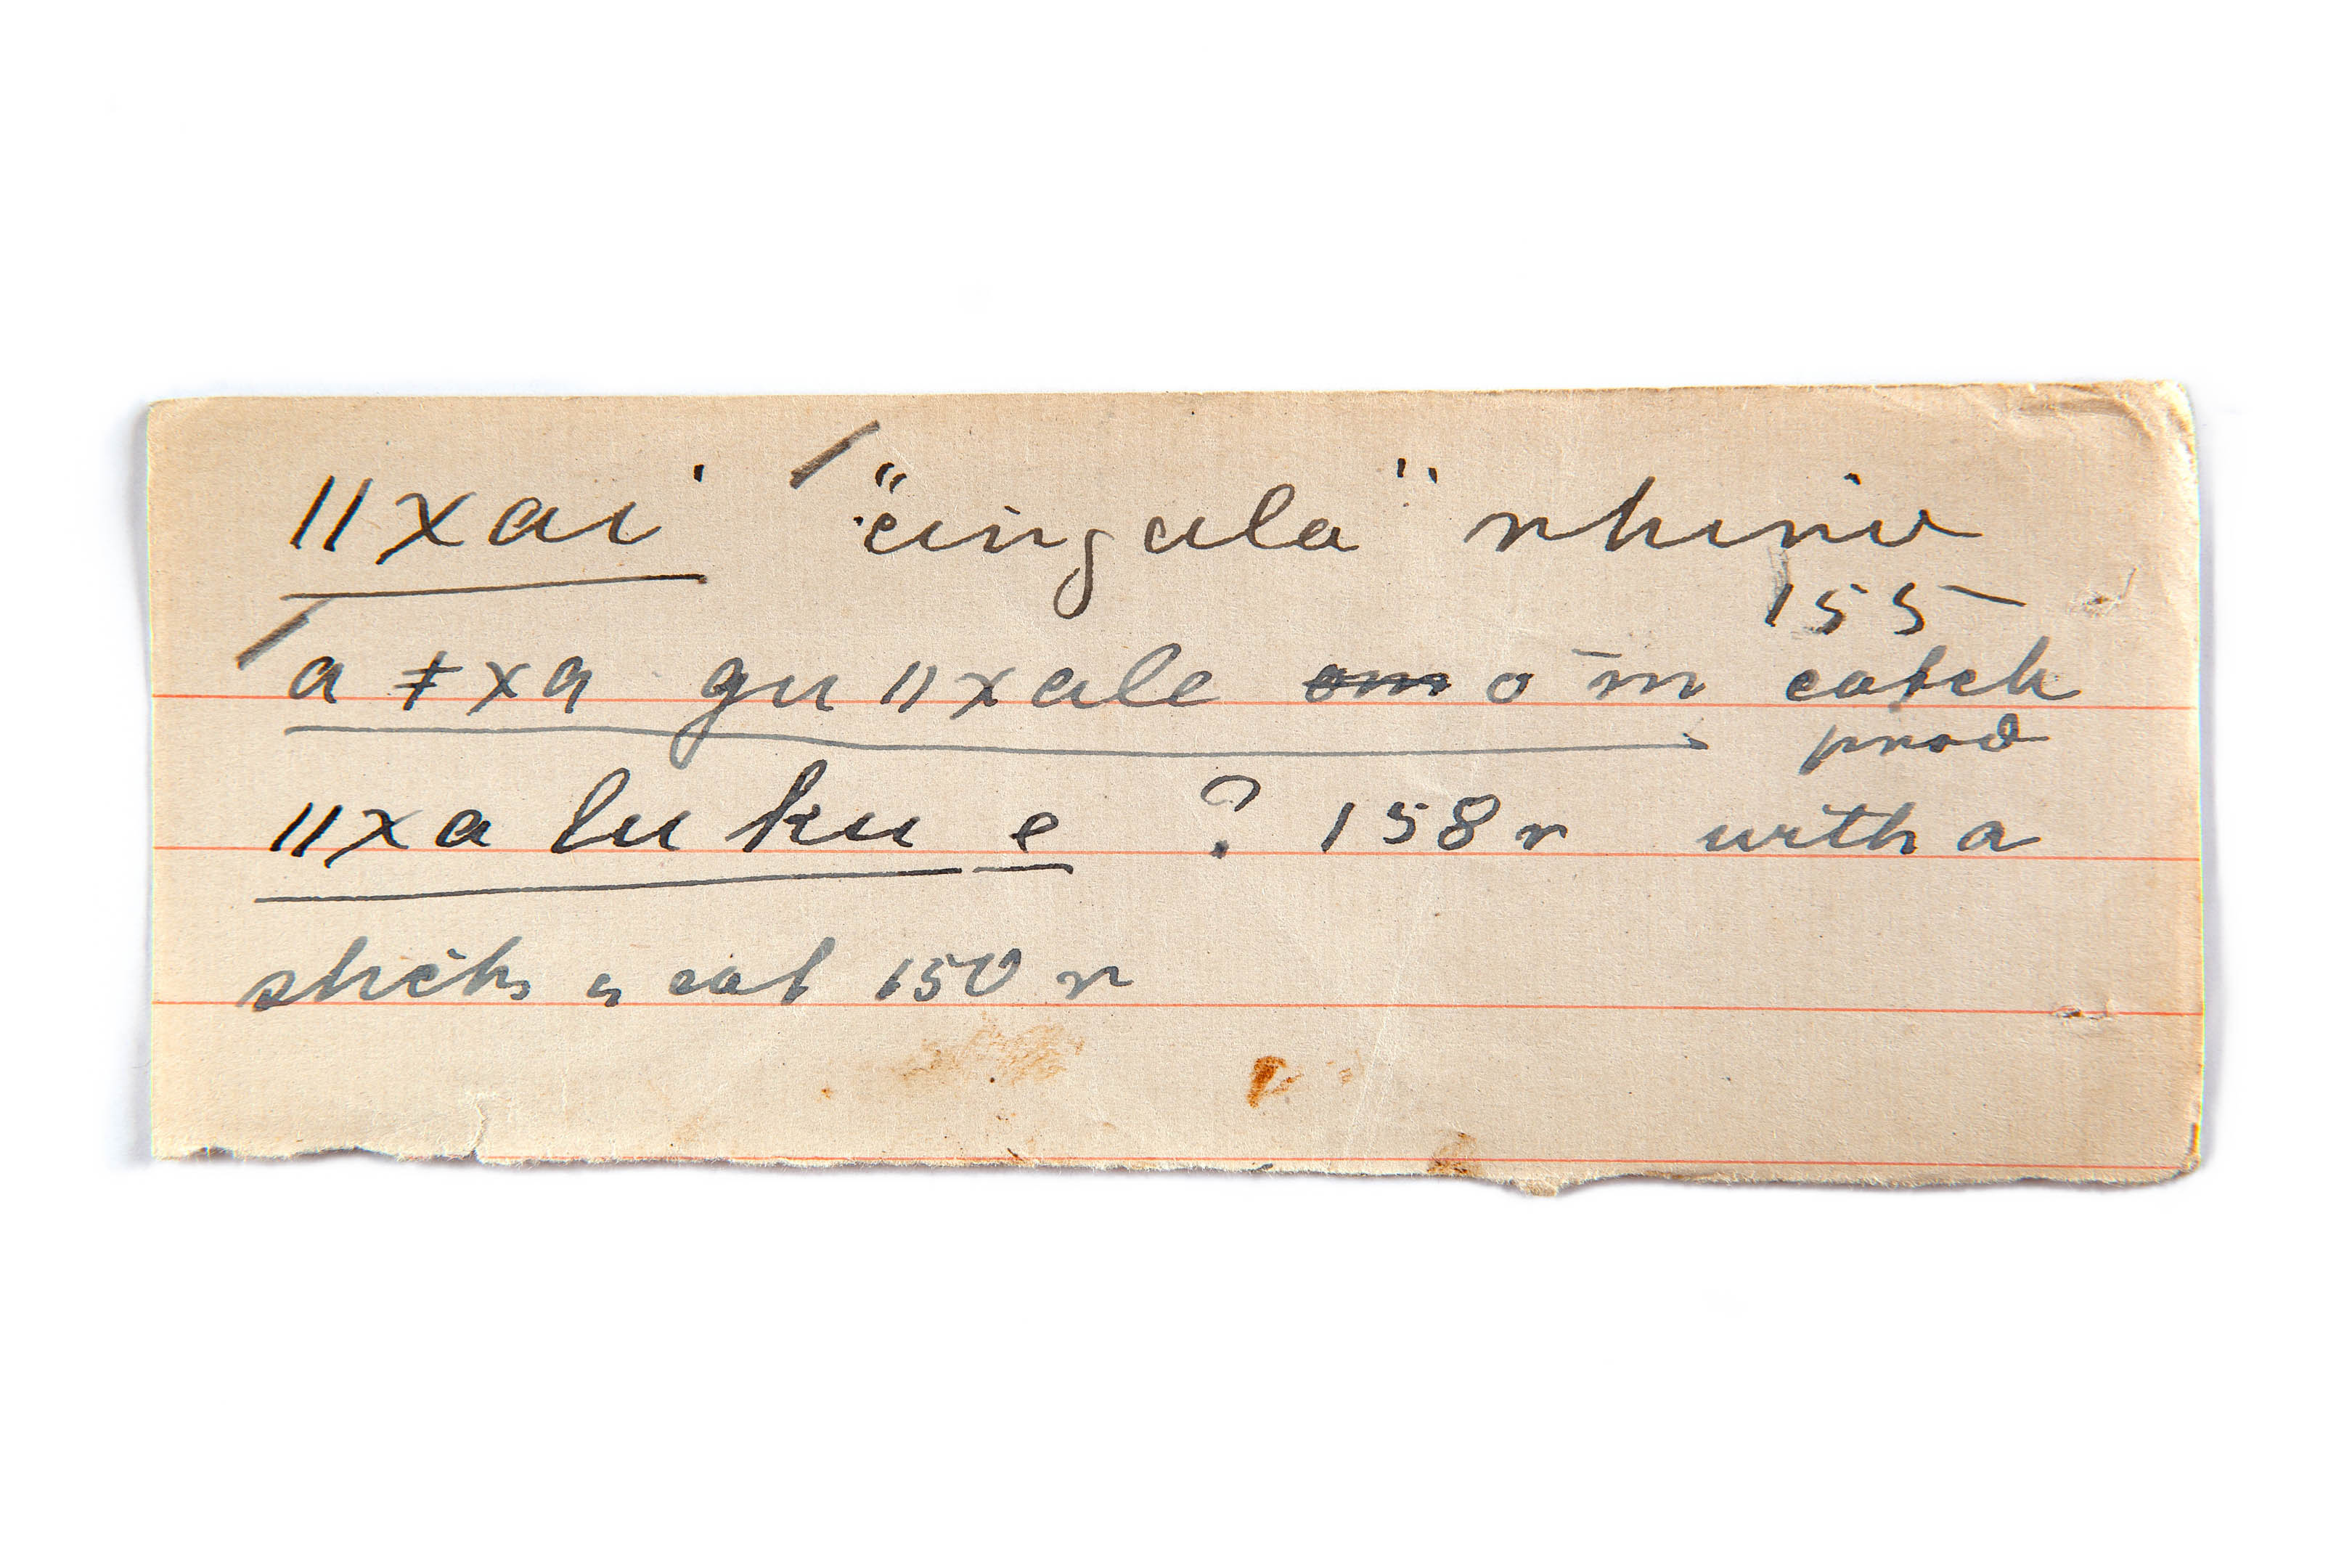 ǁxai' "cingula" rhino
155
a ǂxa gu ǁxale om o m̄ catch
prod
ǁxa lu ku e ? 158 r with a
stick & eat 150 r